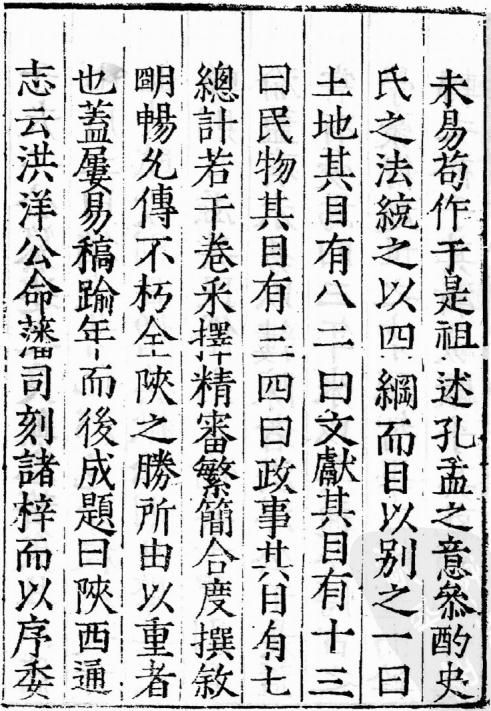 未易苟作于是祖述孔孟之意叅酌史
氏之法統之以四綱而目以别之一曰
土地其目有八二曰文獻其目有十三
曰民物其目有三四曰政事其目有七
總計若干卷采擇精審繁簡合度撰敘
明暢允傳不朽全陜之勝所由以重者
也蓋屢易稿踰年而後成題曰陜西通
志云洪洋公命藩司刻諸梓而以序委